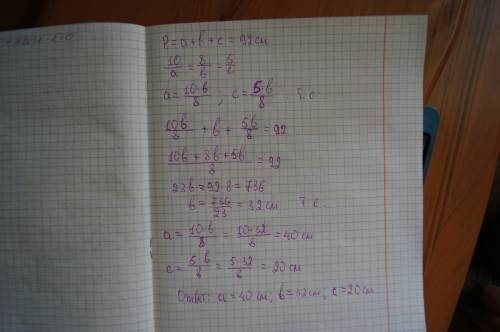 P = a + b + c = 92 см
10/a = 8/b = 5/c
a = 10·b/8 , c = 5·b/8 т.с
10b/8 + b + 5b/8 = 92
10b + 8b + 5b/8 = 92
23b = 92·8 = 736
b = 736/23 = 32 см т к
a = 10·b/8 = 10·32/8 = 40 см
c = 5·b/8 = 5·32/8 = 20 см
Ответ: a = 40 см; b = 32 см; c = 20 см.